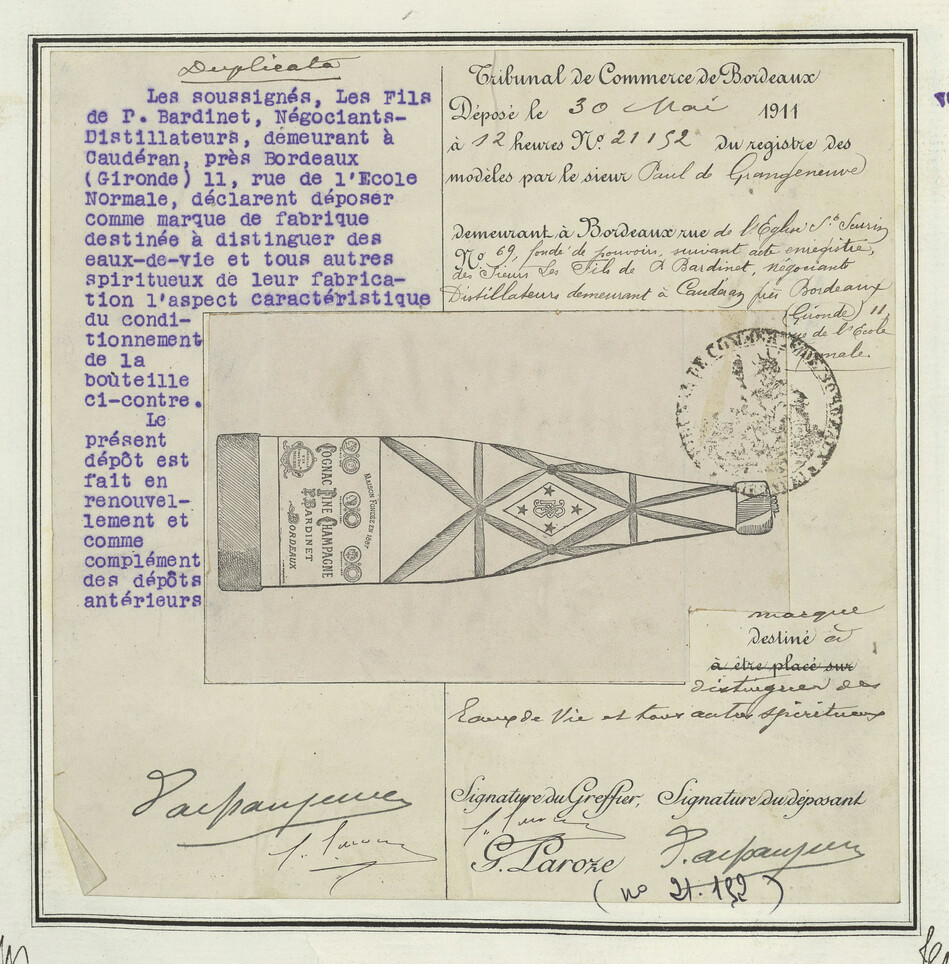 Duplicata
Les soussignés, Les Fils
de P. Bardinet, Négociants-
Distillateurs, démeurant à
Caudéran, près Bordeaux
(Gironde) 11, rue de l'Ecole
Normale, déclarent déposer
comme marque de fabrique
destinée à distinguer des
eaux-de-vie et tous autres
spiritueux de leur fabrica-
tion l'aspect caractéristique
du condi-
tionnement
de la
bouteille
ci-contre.
Le
présent
dépôt est
fait en
renouvel-
lement et
comme
complément
des dépôts
antérieurs
Tribunal de Commerce de Bordeaux
Déposé le 30 Mai 1911
à 12 heures No. 21152 du registre des
modèles par le sieur Paul de Grangeneuve
demeurant à Bordeaux rue de l'Eglise St. Seurin
No 69, fondé de pouvoirs, suivant acte enregistré,
des Sieurs Les Fils de P Bardinet, négociants
Distillateurs demeurant à Caudéran près Bordeaux
(Gironde) 11,
rue de l'Ecole
male.
MAISON FONDÉE EN 1857
COGNAC FINE CHAMPAGNE
P. BARDINET
BORDEAUX
marque
destiné à
à être placé sur
distinguer des
Eaux de Vie et tous autres spiritueux
Signature du Greffier, Signature du déposant
G. Paroze
(no 21.152)